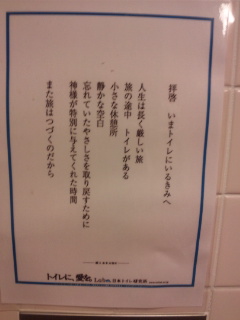 拝啓 いまトイレにいるきみへ
人生は長く厳しい旅
旅の途中 トイレがある
小さな休憩所
静かな空白
忘れていたやさしさを取り戻すために
神様が特別に与えてくれた時間
また旅はつづくのだから
トイレに、愛を。 Lobw. 日本トイレ研究所